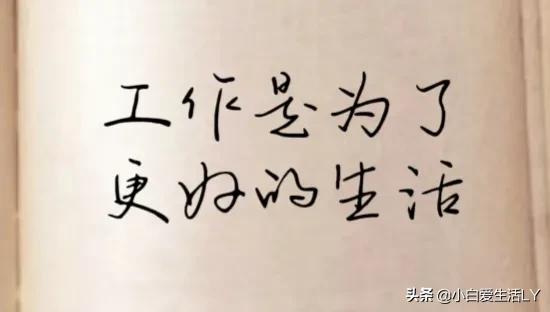 工作是为了
更好的生活
头条 @小白爱生活LY